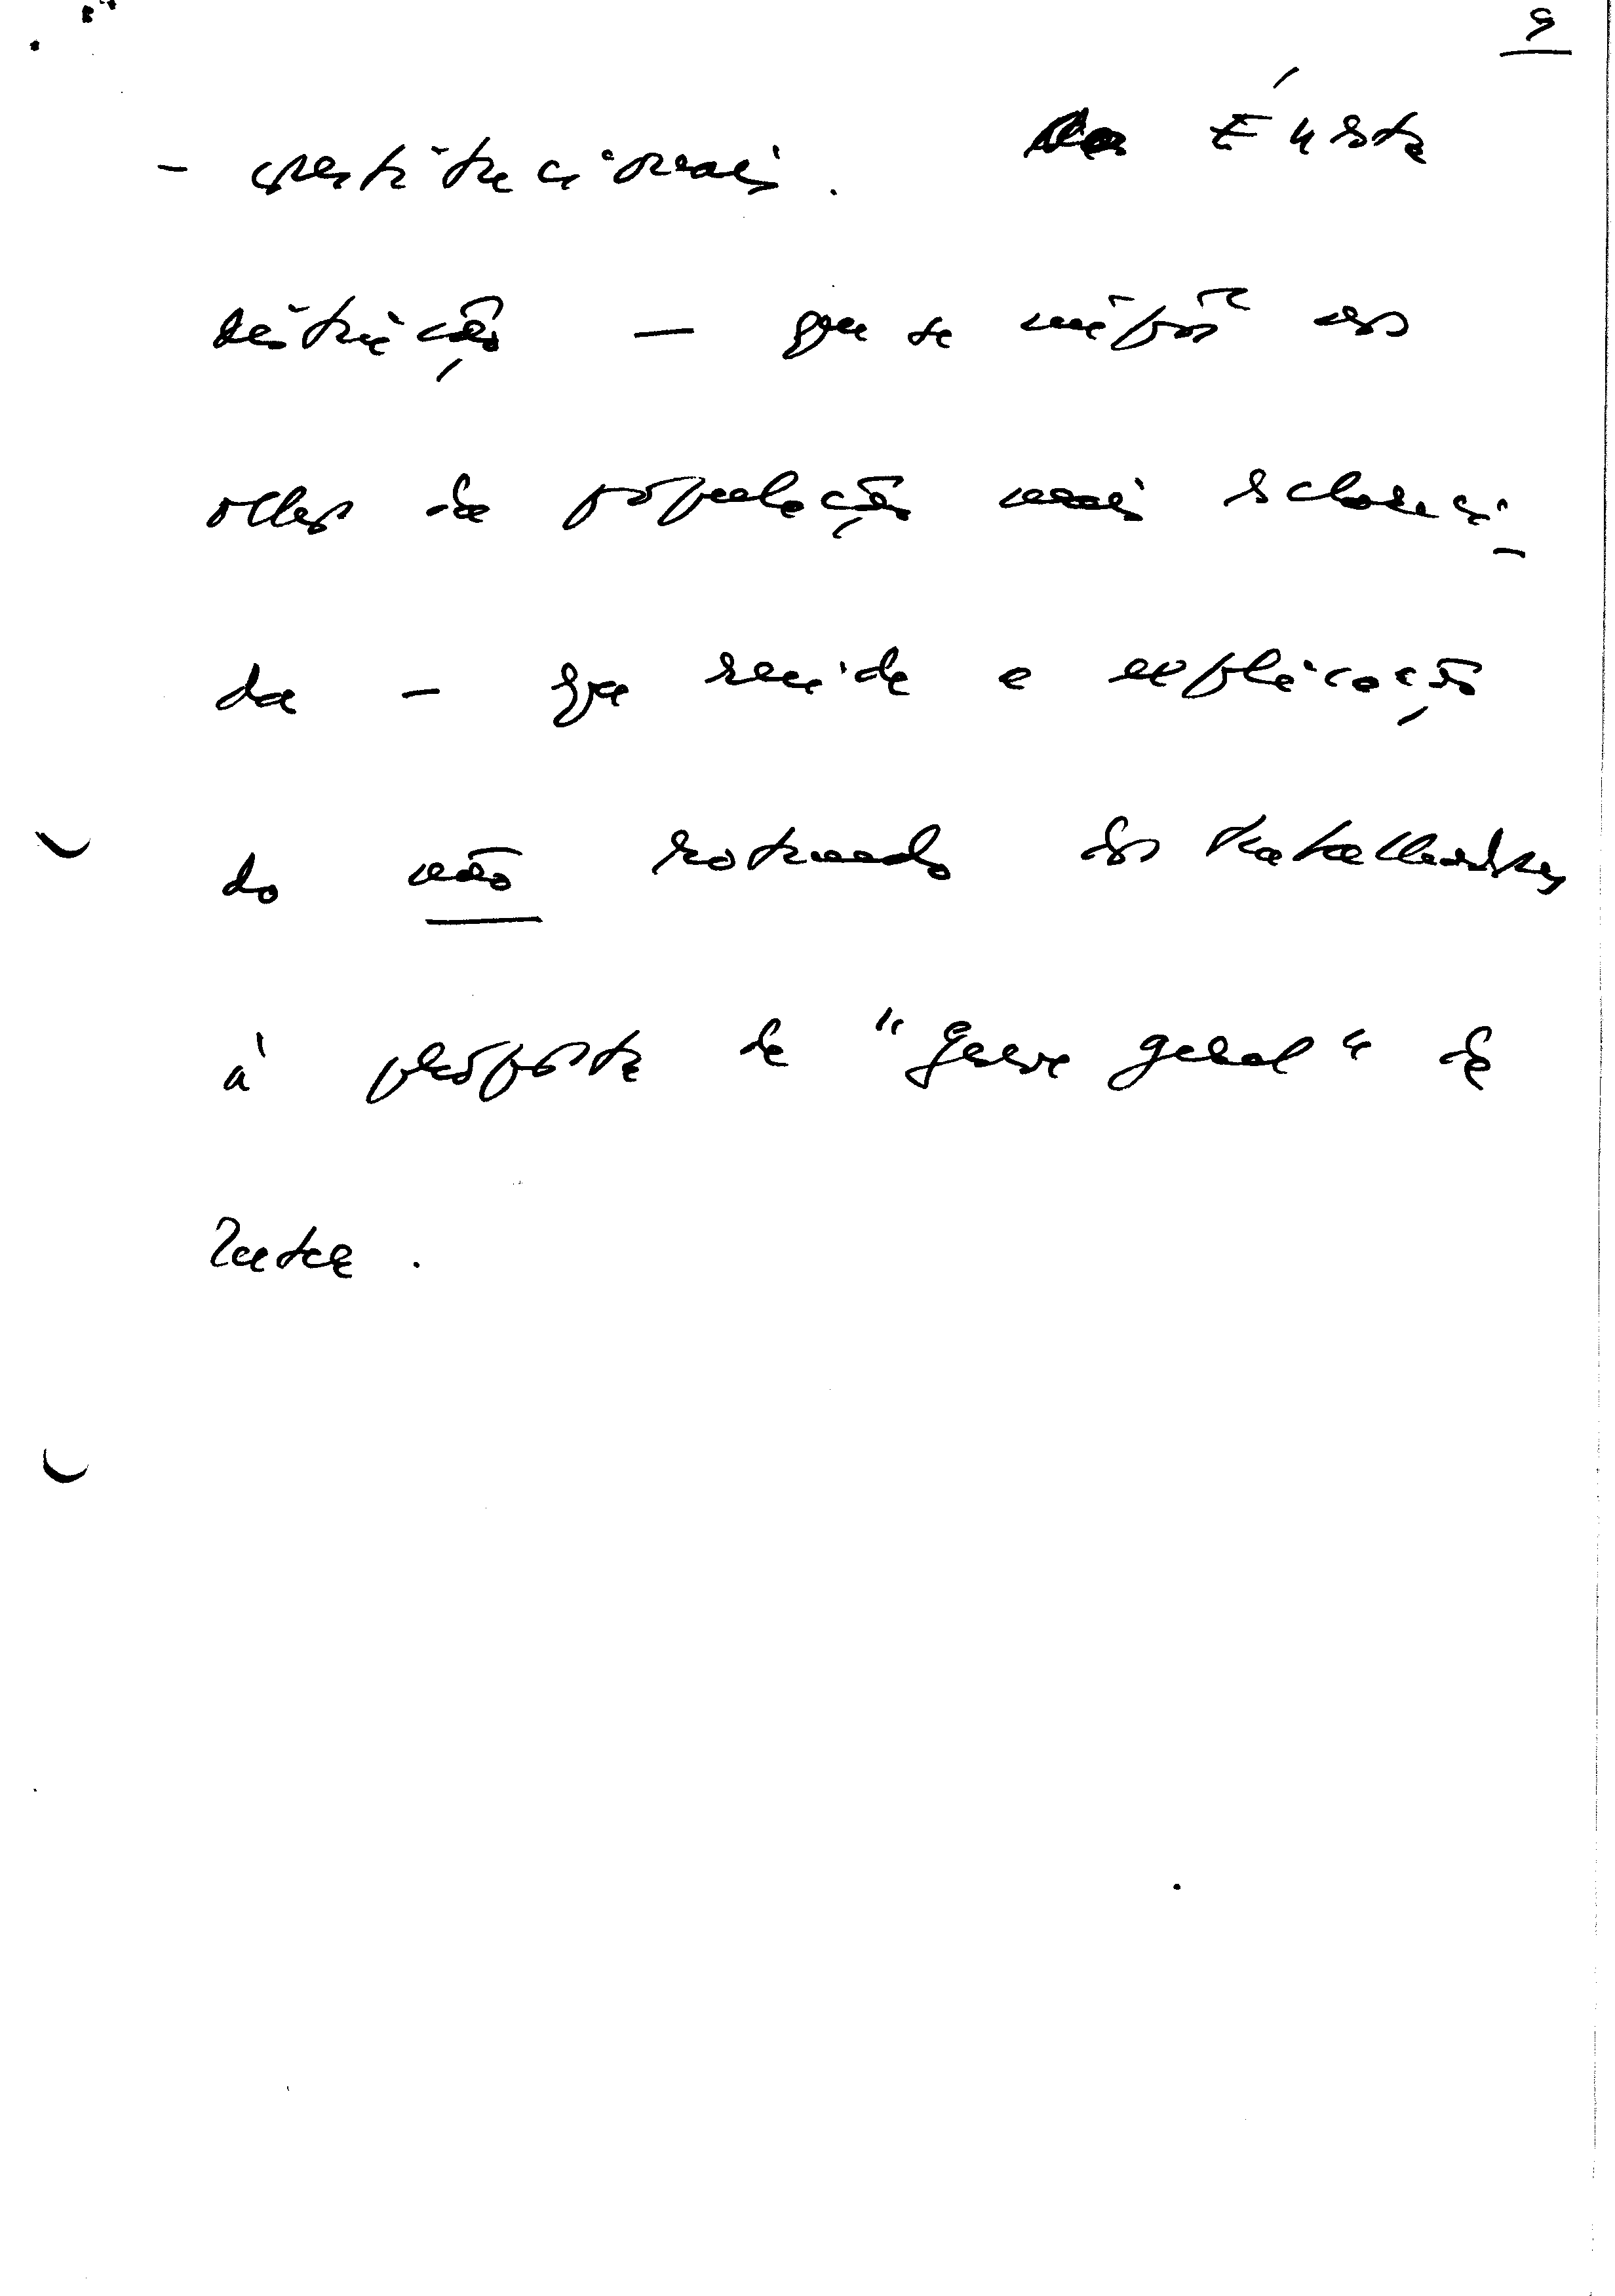 9
- constitucionais. É nesta
distinção — que se impõe aos
olhos da população mais esclareci-
da - que reside a explicação
do não retorno dos trabalhadores
à proposta de "greve geral" de
luta.